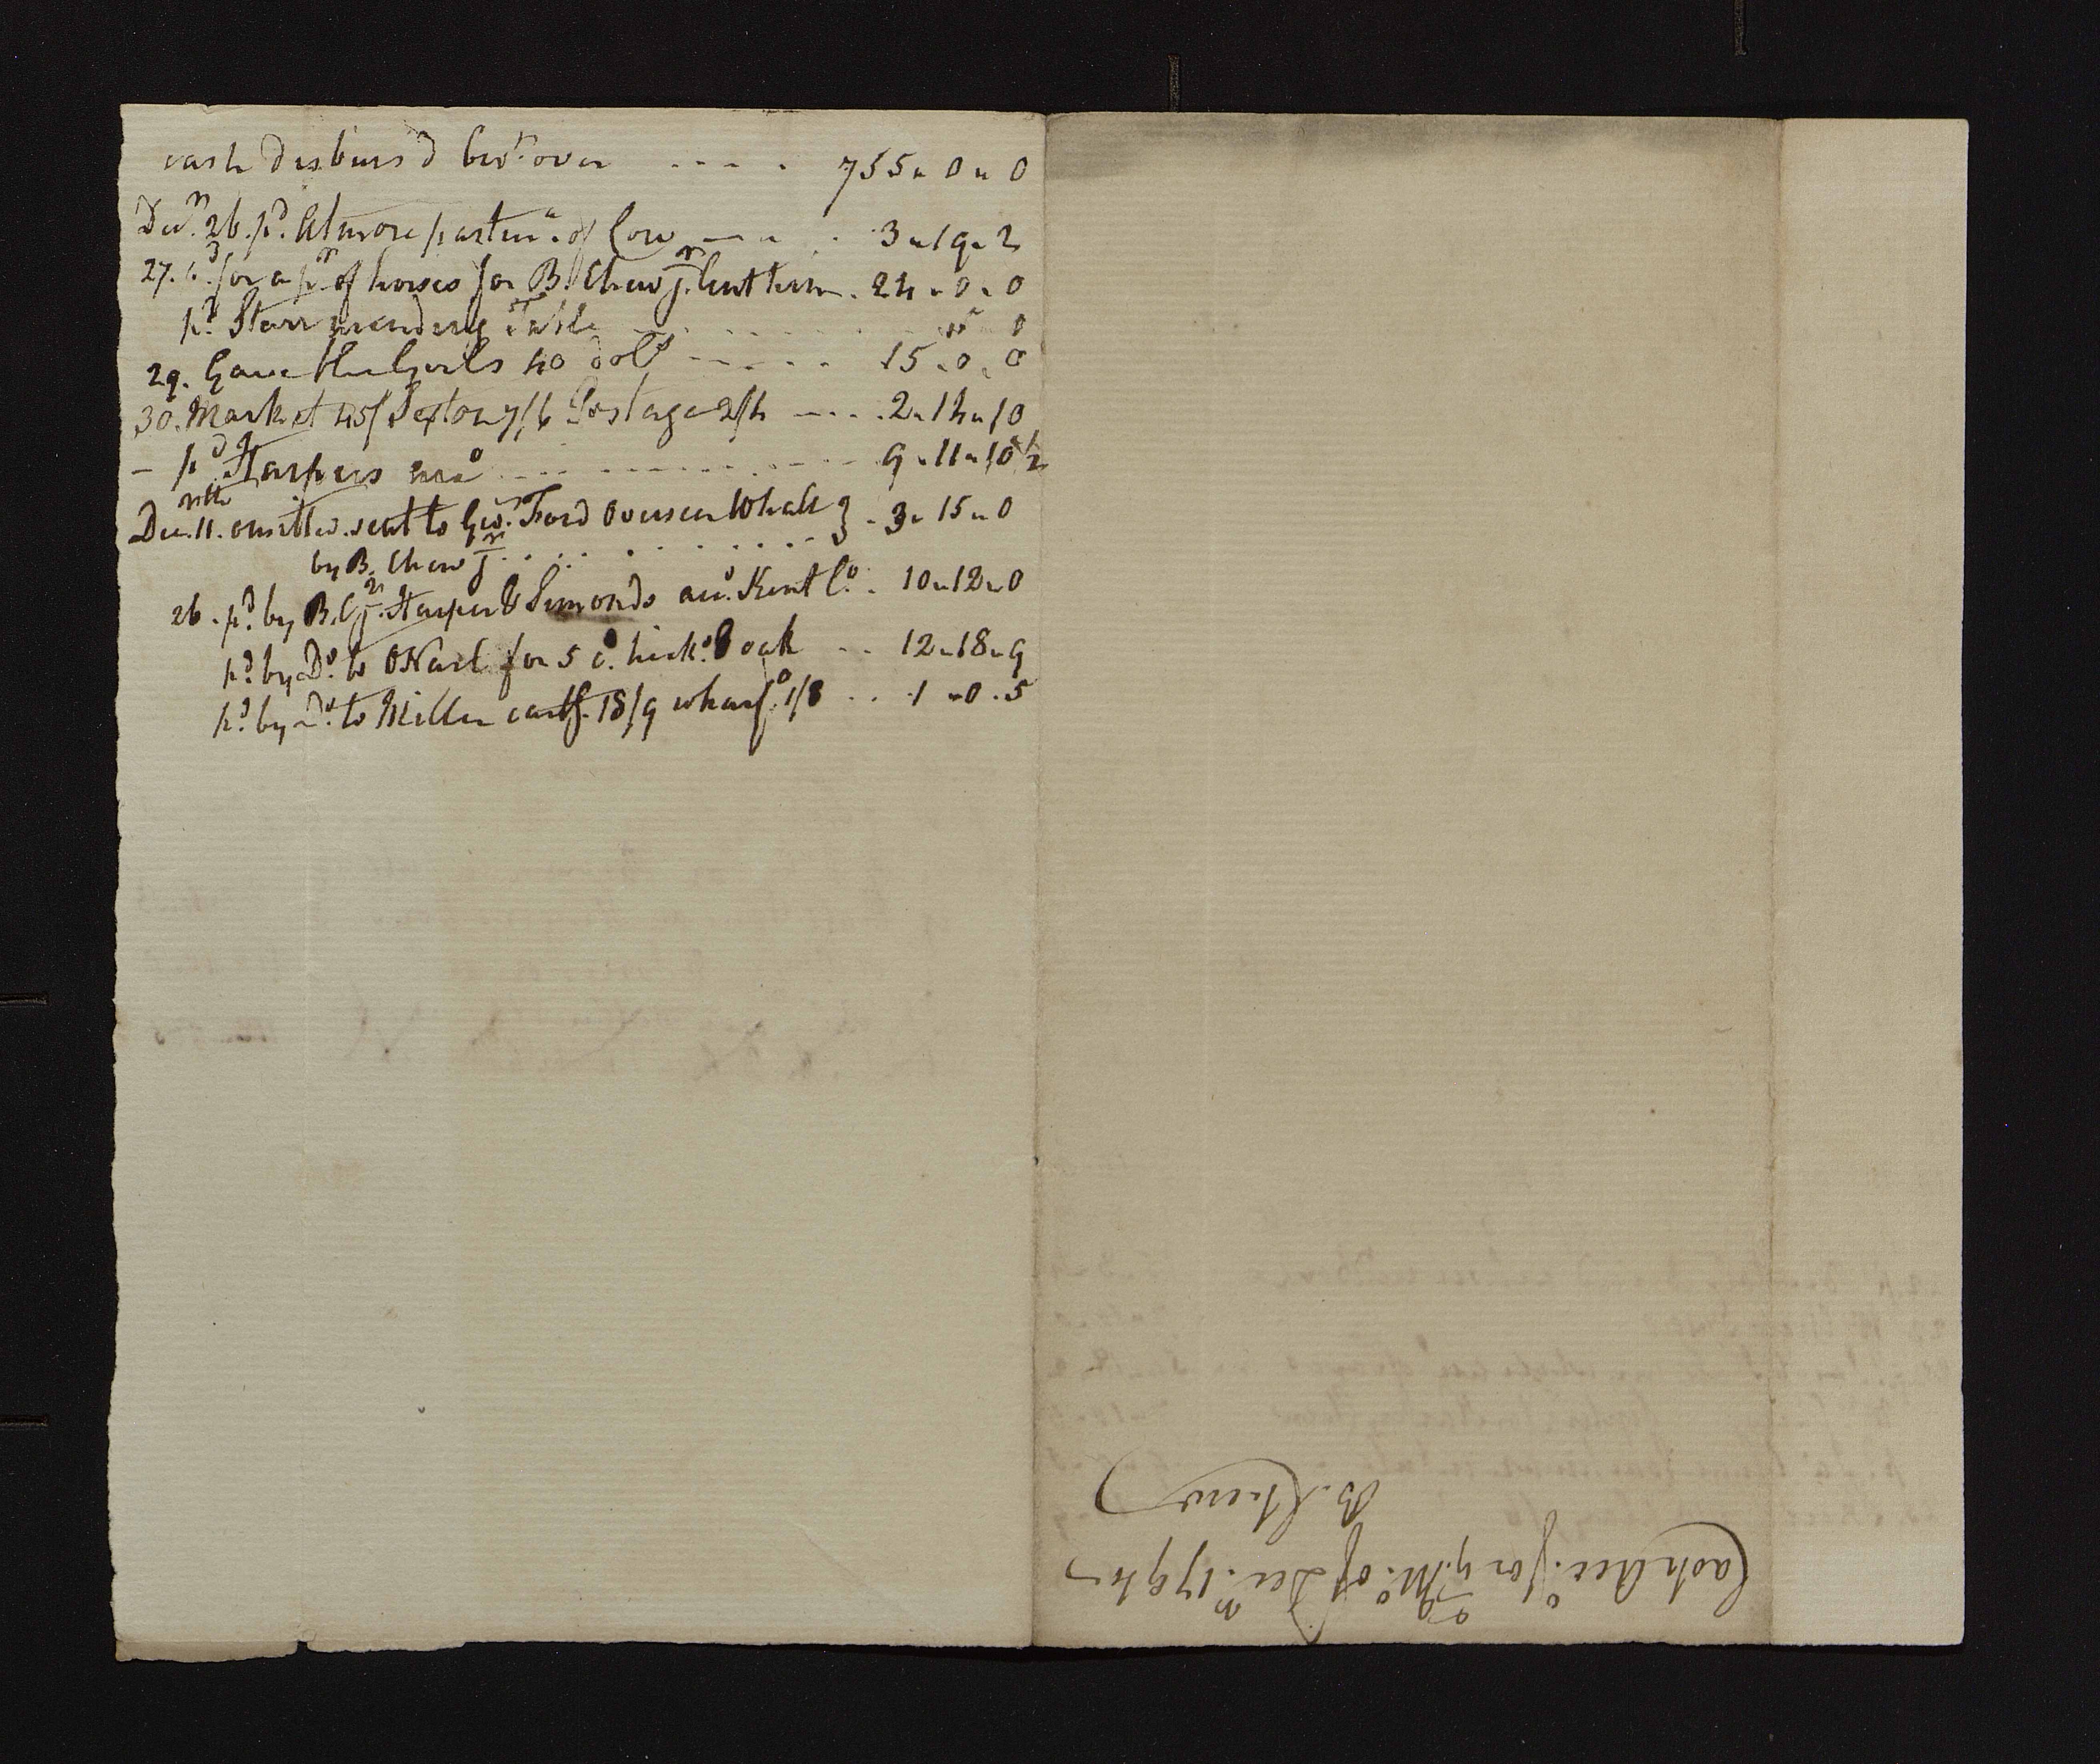 cash disburs'd bro.t over - - - - 755 " 0 " 0
Dec.r 26. p.d Atmore pasture of Cow - - - 3 " 19 " 2
27. p.d for a p.r of horses for B. Chew j.r - 24 " 0 " 0
p.d Starr mending Table - - - - 5 0
29. Gave the Girls 40 dol.s - - - - - 15 " 0 " 0
30. Market 45/ Sexton 7/6 Postage 2/4 - - - 2 " 14 " 10
- p.d Harpers acc.o - - - - - - 9 " 11 " 10 1/2
Dec. 11. omitted. sent to Geo. Ford overseer Whall } - 3 " 15 " 0
by B. Chew j.r
26. p.d by B. C j.r Harper & Simonds acc.o Kent C.o . 10 " 12 " 0
p.d by D.o to ONail for 5 c. hick.o & oak - - 12 " 18 " 9
p.d by D.o to Miller cart.g 18/9 wharf.o 1/8 - - 1 " 0 " 5
Cash Acc.o for y.e M.o of Dec.r 1794
B. Chew